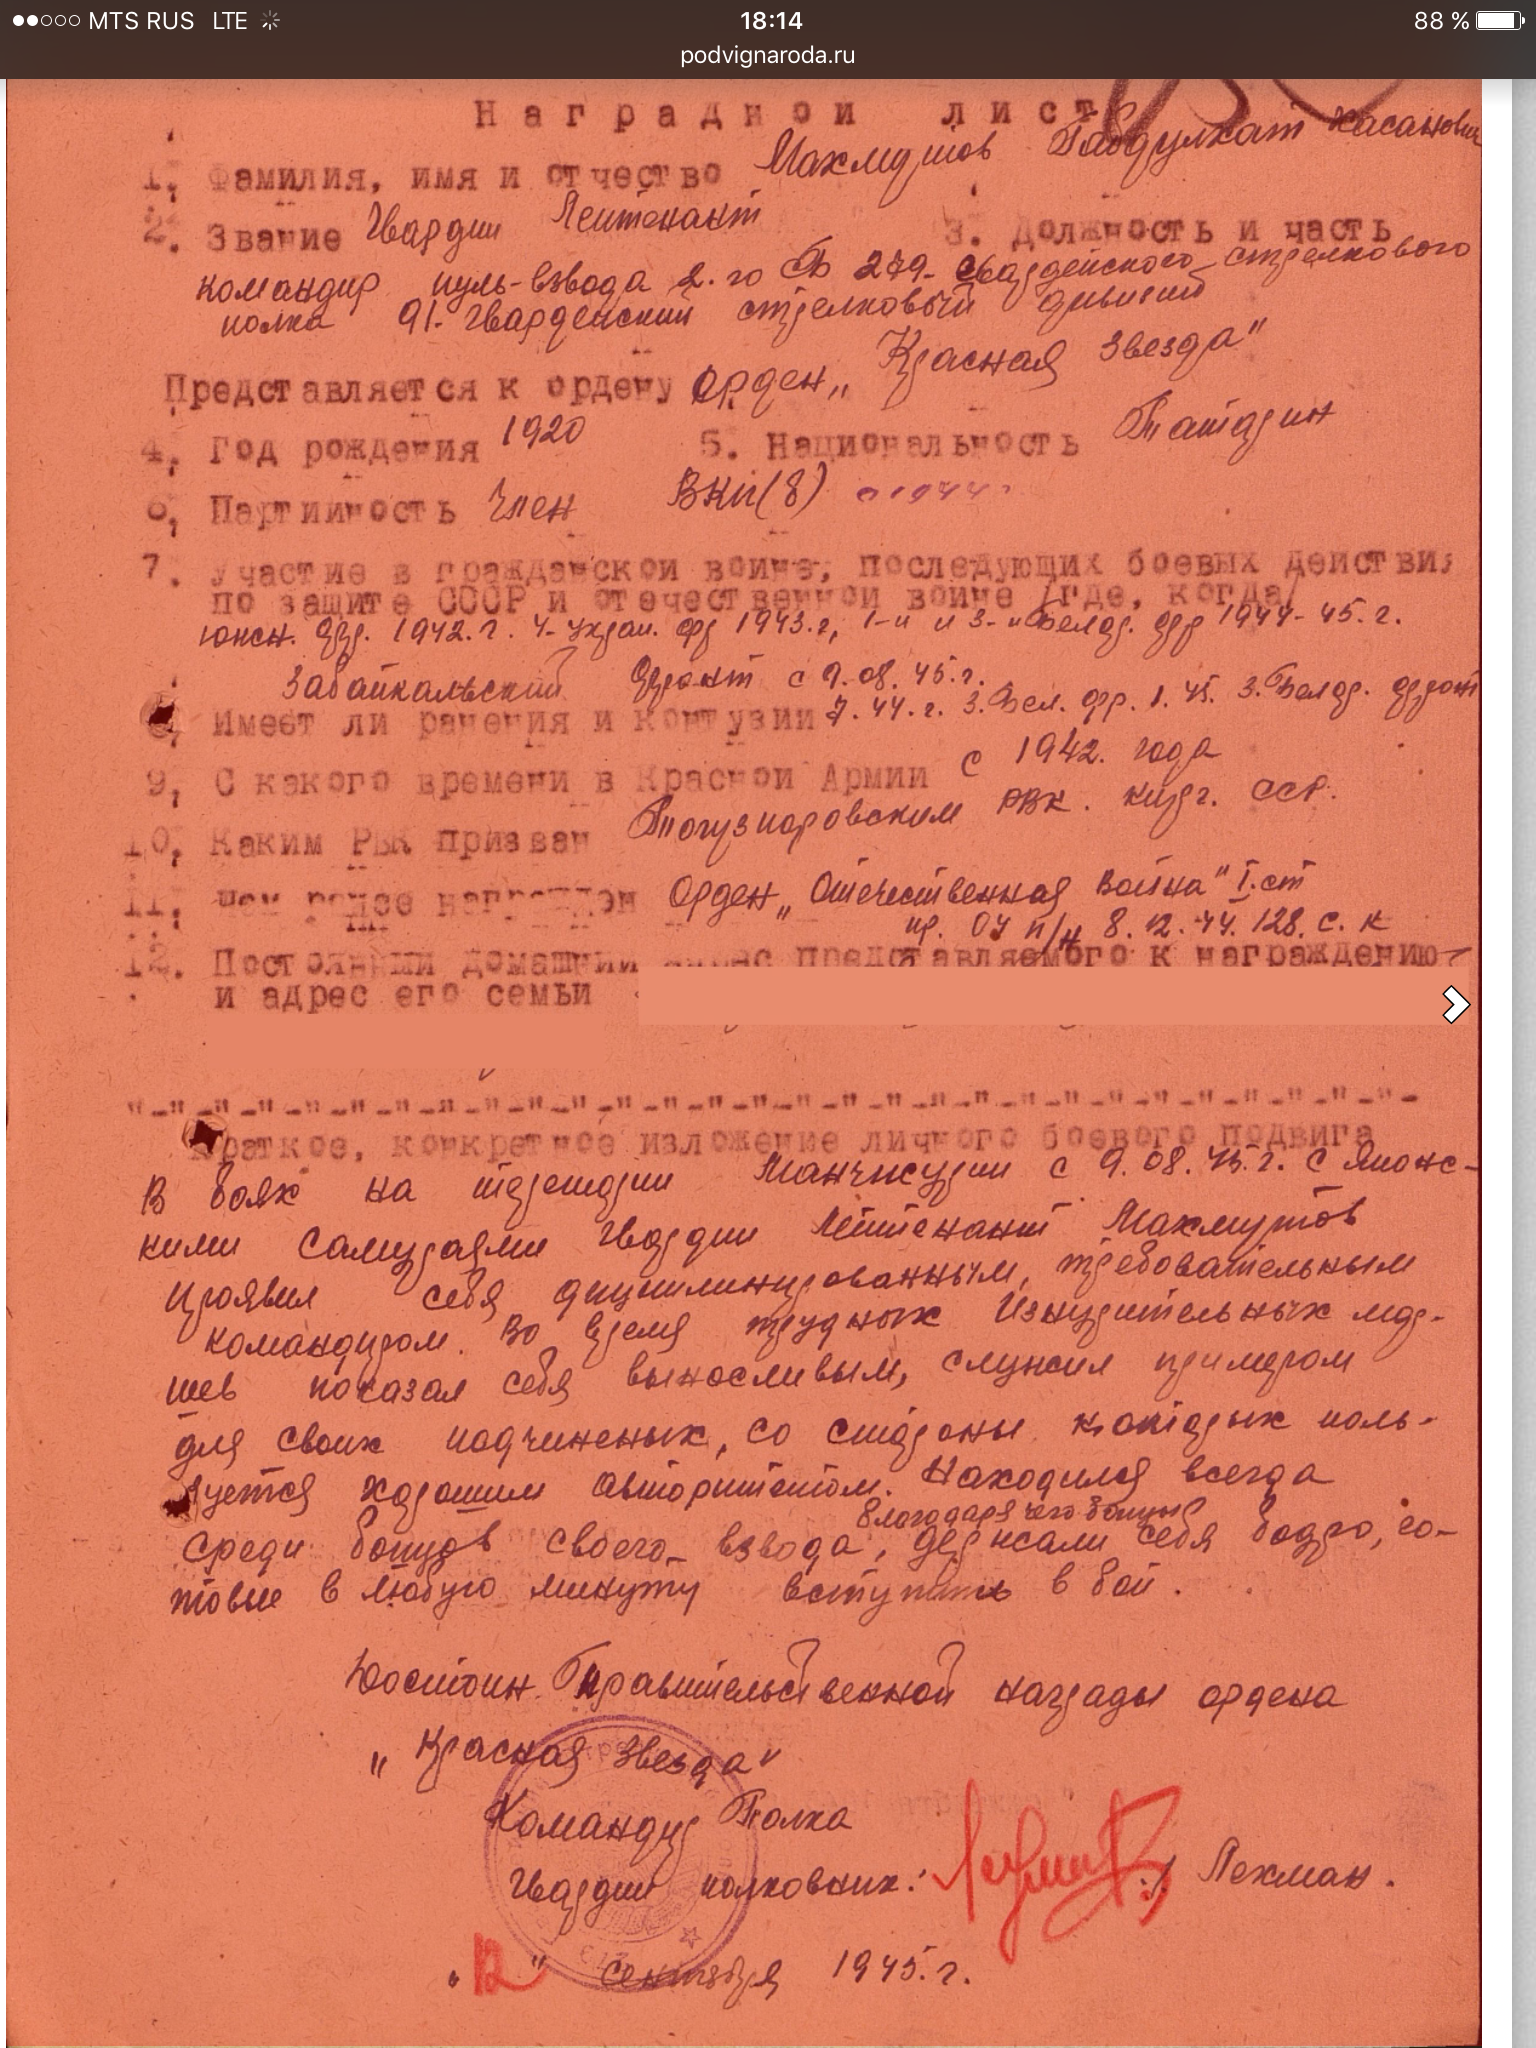 MTS RUS LTE 18:14 88 %
podvignaroda.ru
Наградной лист
1, Фамилия, имя и отчество Махмутов Габдулхат Хасанович
2. Звание Гвардии Лейтенант 3. Должность и часть
командир пуль-взвода 2.го СБ 279- Гвардейского стрелкового
полка 91-гвардейский стрелковый дивизий
Представляется к ордену Орден „Красная Звезда"
4, Год рождения 1920 5. Национальность Татарин
6, Партийность Член ВКП(б) с 1944 г
7. Участие в гражданской войне, последующих боевых действия
по защите СССР и отечественной войне /где, когда/
южн. фр. 1942.г. 4-украи. фр 1943.г, 1-й и 3-й Белор. фр 1944-45.г.
Забайкальский фронт с 9.08.45.г.
8, Имеет ли ранения и контузии 7.44.г. 3.Бел. фр. 1.45. 3.Белор. фронт
9, С какого времени в Красной Армии с 1942. года
10, Каким РВК призван РВК. кирг. ССР.
11, Чем ранее награжден Орден „Отечественная Война" I.ст
пр. 04 п/н 8.12.44. 128. с. к
12. Постоянный домашний адрес представляемого к награждению
и адрес его семьи
"-"-"-"-"-"-"-"-"-"-"-"-"-"-"-"-"-"-"-"-"-"-"-"-"-"-"-"-
Краткое, конкретное изложение личного боевого подвига
В боях на территории Манчжурии с 9.08.45.г. с Японс-
кими самураями Гвардии Лейтенант Махмутов
проявил себя дицеплинированным, требовательным
командиром. Во время трудных Изнурительных мар-
шев показал себя выносливым, служил примером
для своих подчиненых, со стороны которых поль-
зуется хорошим авторитетом. Находился всегда
благодаря чего бойцы
среди бойцов своего взвода, держали себя бодро, го-
товые в любую минуту вступить в бой.
Достоин Правительственной награды ордена
„Красная Звезда"
Командир Полка
Гвардии полковник: /Лехман.
„12" сентября 1945.г.